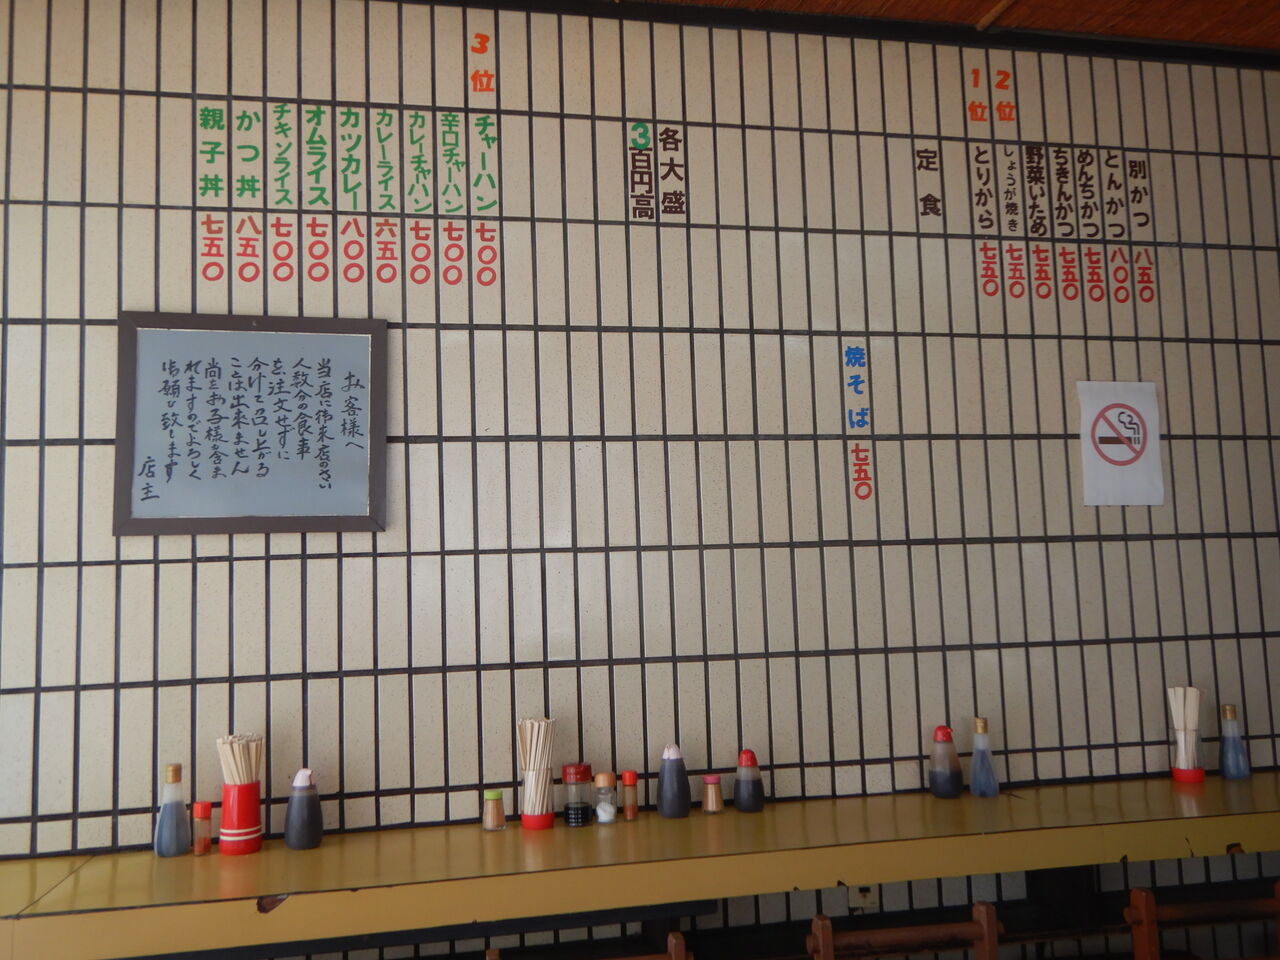 1位
2位
別かつ 八五〇
とんかつ 八〇〇
めんちかつ 七五〇
ちきんかつ 七五〇
野菜いため 七五〇
しょうが焼き 七五〇
とりから 七五〇
定食
焼そば 七五〇
各大盛
3百円高
3位
チャーハン 七〇〇
辛口チャーハン 七〇〇
カレーチャハン 七〇〇
カレーライス 六五〇
カツカレー 八〇〇
オムライス 七〇〇
チキンライス 七〇〇
かつ丼 八五〇
親子丼 七五〇
お客様へ
当店に御来店のさい
人数分の食事
を注文せずに
分けて召し上がる
ことは出来ません
尚をお子様も含ま
れますのでよろしく
御願い致します
店主